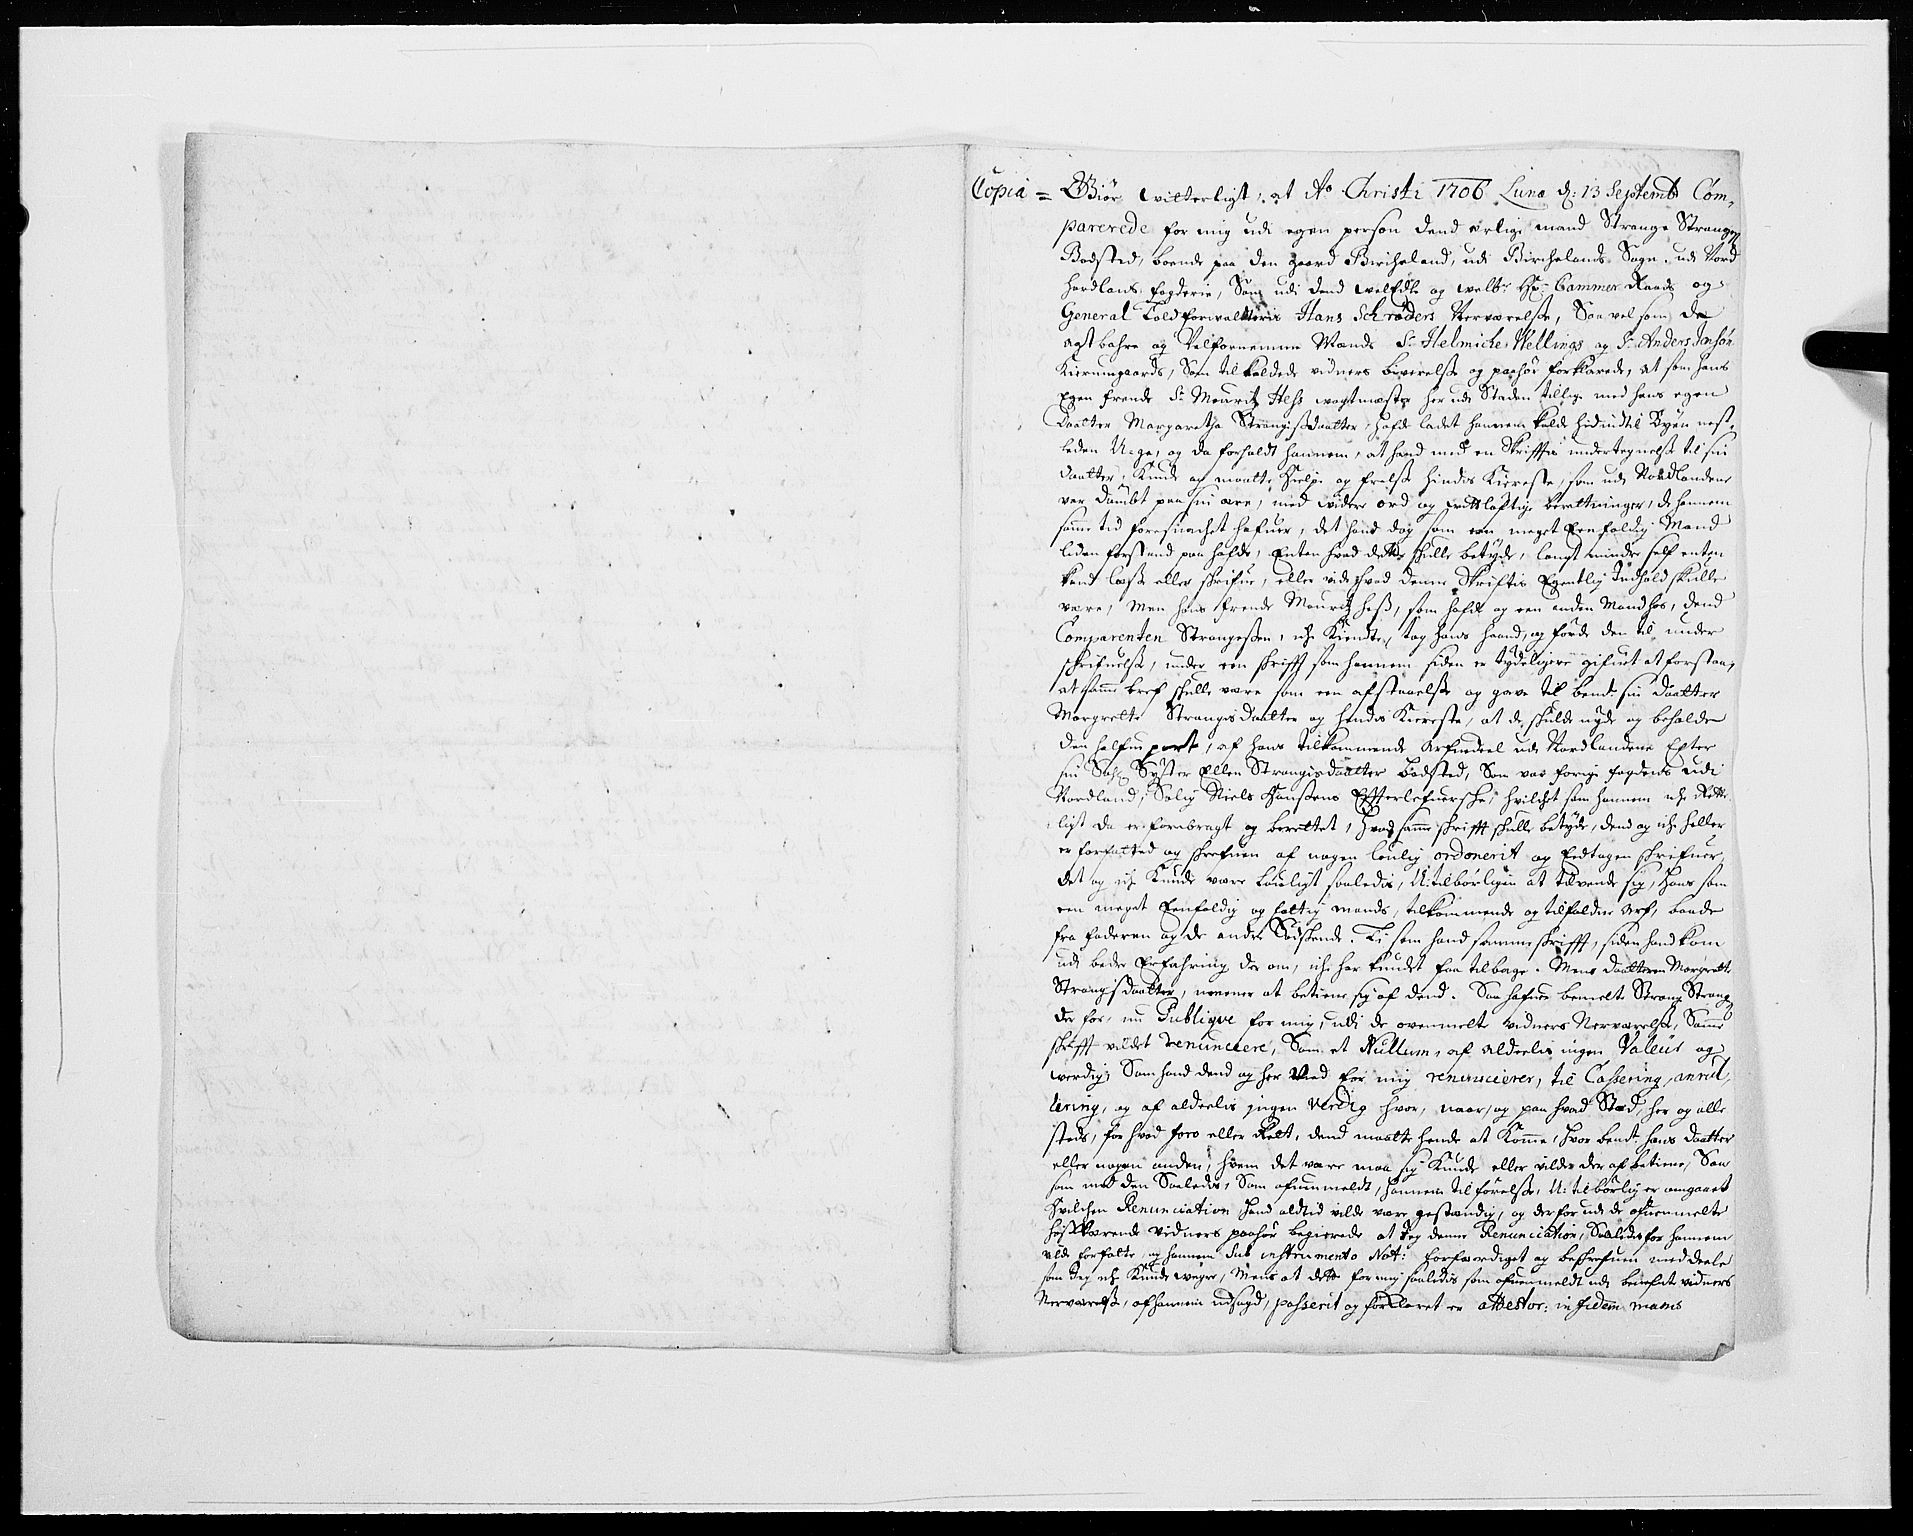 Copia = Giør vitterligt, at Ao Christi 1706 Luna d: 13 Septembr Com,
parerede for mig udi egen person dend erlige mand Strange Strangesen
Bodsted, boende paa den gaard Bircheland, udi Birchelands Sogn, udi Nord
hordlans fogderie, Som udi dend welEdle og welbr Hr: Cammer Raads og
General Toldforvalteris Hans Schrøders Nerværelse, Saa vel som de
agtbahre og Velfornemme Mænds Sr Helmiche Wellings og Sr Anders Jensøn
Kierumgaards, Som tilkaldede vidners biverelse og paahør forklarede, at som hans
Egen frende Sr Mouritz Hess wagtmester her udi Staden tillige med hans egen
Daatter Margaretha Strangisdaatter, hafde ladet hannem kalde hidindtil Byen nest,
leden Uge, og da forholdt hannem, at hand med en Skrifftis undertegnelse til sin
daatter, Kunde og maatte Hielpe og frelse hindis Kiereste, som udi Nordlandene
var daubt paa sin ære, med videre ord og vittløftige berettninger, de hannem
samme tid foresnachet hafuer, det hand dog som een meget Eenfoldig Mand
liden forstand paa hafde, Enten hvad dette skulle betyde, langt mindre self enten
kand læse eller skrifue, eller vide hvad denne Skriftis Egentlig Indhold skulle
være, Men hans frende Mouritz Hess, som hafde og een anden Mand hos, dend
Comparenten Strangesen iche Kiendte, tog hans haand, og førde den til under
skrifuelse, under een skrifft som hannem siden er tydeligere gifuet at forstaa,
at samme bref skulle være som een afstaaelse og gave til bemte sin daatter
Margrette Strangisdaatter og hendis Kiereste, at de skulde nyde og beholde
den halfue part, af hans tilkommende arfuedeel udi Nordlandene Efter
sin Sal: Syster Ellen Strangisdaatter Bodsted, Som var forige fogdens udi
Nordland, Salig Niels Hansens Efterlefuersche, hvilchet som hannem iche Rette
ligt da er forebragt og berettet, hvad samme skrifft skulle betyde, dend og iche heller
er forfatted og skrefuen af nogen louglig ordonerit og Eedtagen skrifuer,
det og iche Kunde være Louligt saaledis, U:tilbørligen at tilvende sig, Hans som
een meget Eenfoldig og fattig mands, tilkommende og tilfaldne arf, baade
fra faderen og de andre Sødskende. Ti som hand samme skrifft, siden hand kom
udi bedre Erfahring der om, iche har kundet faa tilbage. Mens daatteren Margrette
Strangisdaatter, meener at betiene sig af dend. Saa hafuer bemelte Strange Strangesen
der for, nu Publiqve for mig, udi de ovenmelte vidners Nerværelse, Samme
skrifft vildet renunciere, Som et Nullum, af aldeelis ingen Valeur og
værdig, Som hand dend og her Ved for mig renuncierer, til Cassering, anrul,
lering, og af aldeelis jngen Verdig hvor, naar, og paa hvad Stæd, her og alle
steds, for hvad foro eller Rett, dend maatte hende at Komme, hvor bemte hans daatter
eller nogen anden, hvem det være maa sig Kunde eller vilde der af betiene, Saa
som med den Saaledis, Som ofuenmeldt, hannem til førelse, U:tilbørlig er omgaaet
Hvilchen Renunciation Hand altid vilde være gestændig, og derfor udi de ofuenmelte
høystærende vidners paahør begierede at Jeg denne Renunciation, Saaledis for hannem
vilde forfatte, og hannem sub instrumento Not: forfærdiget og beskrefuen meddeele
som Jeg iche Kunde weyre, Mens at dette for mig saaledis som ofuenmeldt udi benefnte vidners
Nerværelse, af hannem udsagd, passerit og forklaret er attestor: in fidem manus